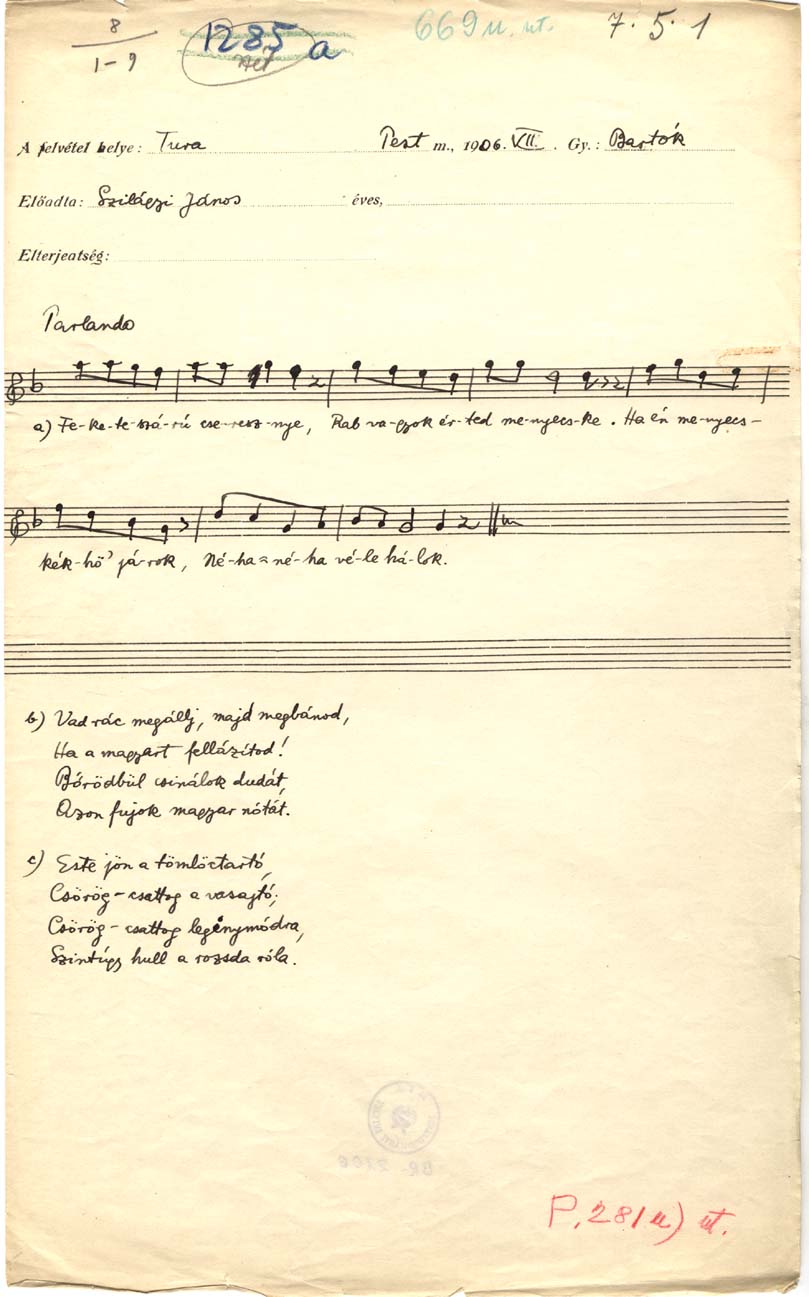 8
1-9
1285 a
669 u. ut.
7. 5. 1
A felvétel helye: Tura Pest m., 1906. VII. Gy.: Bartók
Előadta: Szilágyi János éves,
Elterjeatség:
Parlando
a) Fe-ke-te-szá-rú cse-resz-nye, Rab va-gyok ér-ted me-nyecs-ke. Ha én me-nyecs-
kék-hő' já-rok, Né-ha=né-ha vé-le há-lok.
b) Vad rác megállj, majd megbánod,
Ha a magyart fellázítod!
Bőrödbül csinálok dudát,
Azon fujok magyar nótát.
c) Este jön a tömlöctartó,
Csörög-csattog a vasajtó;
Csörög-csattog legénymódra,
Szintúgy hull a rozsda róla.
P. 281 u) ut.